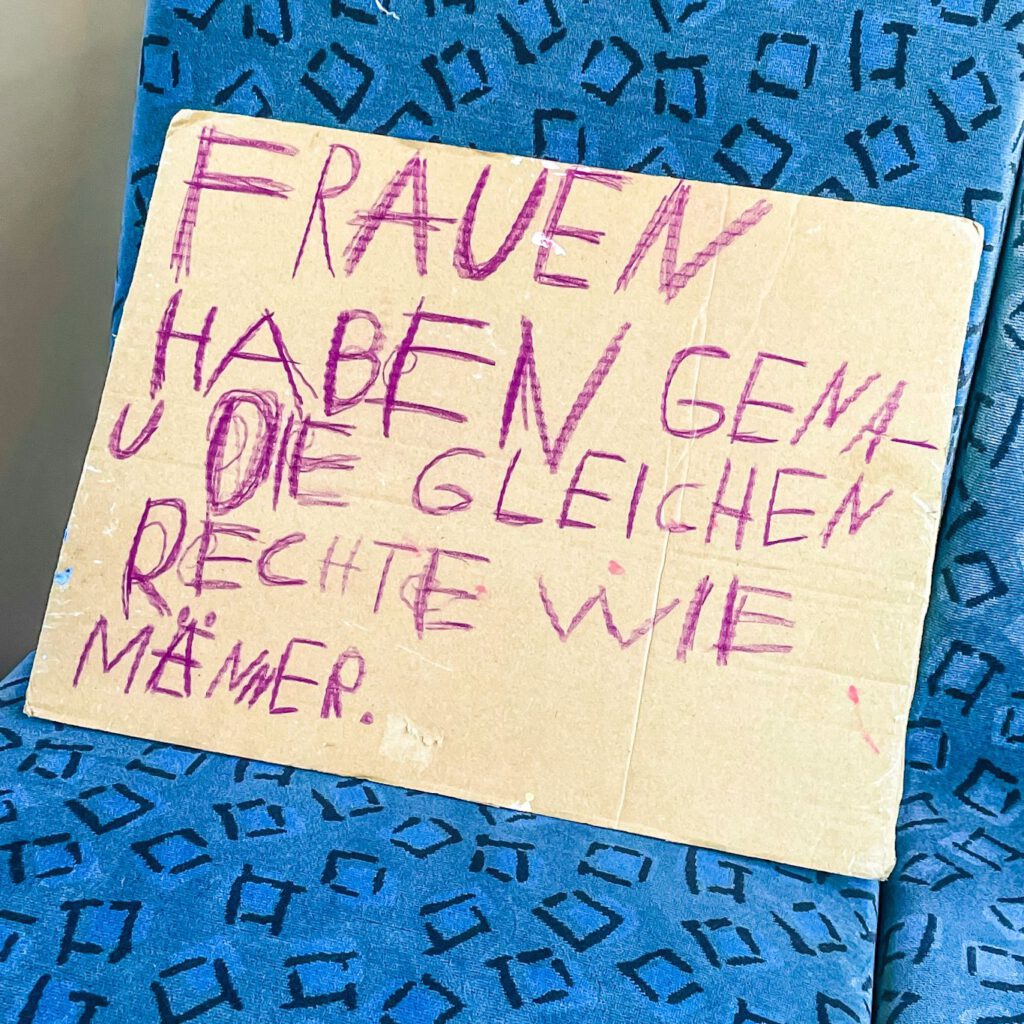 FRAUEN
HABEN GENA-
U DIE GLEICHEN
RECHTE WIE
MÄNNER.